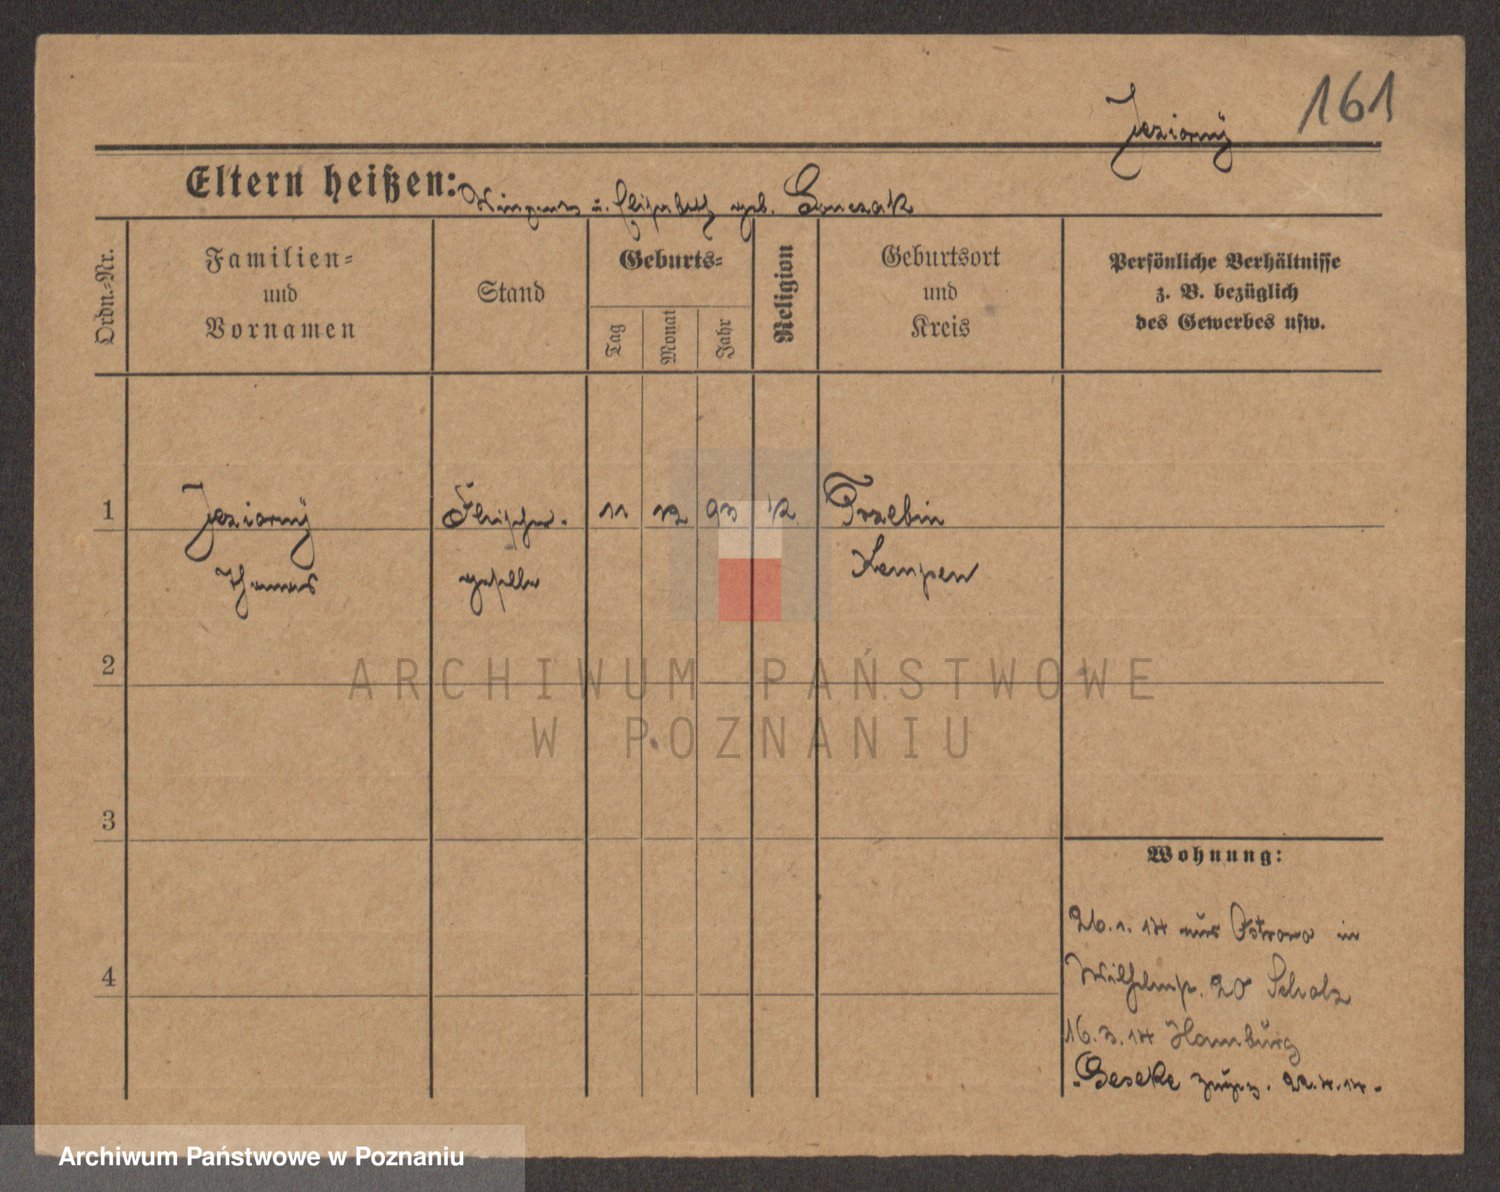 161
Jeziorny
Eltern heißen: Vinzent u. Elisabeth geb. Gonczak
Ordn.-Nr.
Familien-
und
Vornamen
Stand
Geburts-
Tag
Monat
Jahr
Religion
Geburtsort
und
Kreis
Persönliche Verhältnisse
z. B. bezüglich
des Gewerbes usw.
1 Jeziorny Fleischer- 11 12 93 K Trzebin
Thomas geselle Kempen
2
3
4
Wohnung:
26. 1. 14 aus Ostrowo in
Wilhelmstr. 20 Scholz
16. 3. 14 Hamburg
Geseke 22. 4. 14.
ARCHIWUM PAŃSTWOWE
W POZNANIU
Archiwum Państwowe w Poznaniu